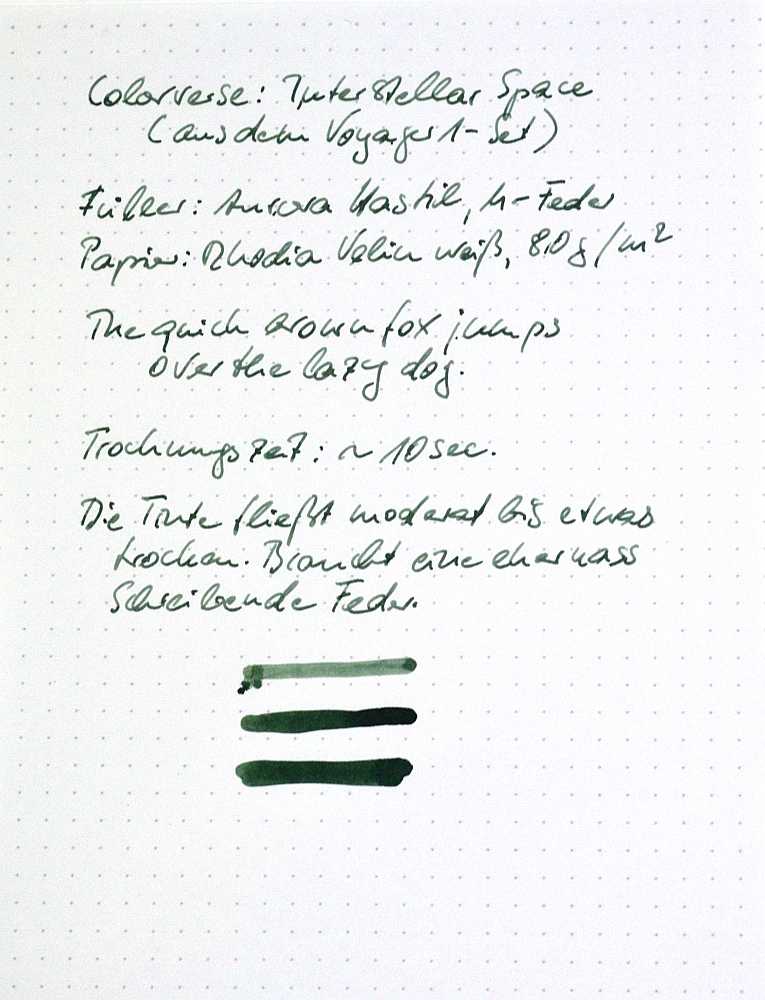 Colorverse: Interstellar Space
(aus dem Voyager 1-Set)
Füller: Aurora Hastil, M-Feder
Papier: Rhodia Velin weiß, 80g/m²
The quick brown fox jumps
over the lazy dog.
Trocknungszeit: ~ 10 sec.
Die Tinte fließt moderat bis etwas
trocken. Braucht eine eher nass
schreibende Feder.